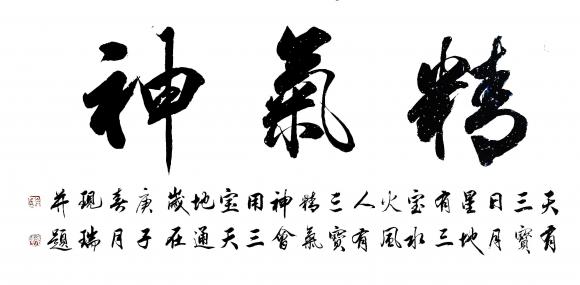 精氣神
天有
三寶
日月
星地
有三
宝水
火風
人有
三寶
精氣
神會
用三
宝天
地通
歲在
庚子
春月
現瑞
并題